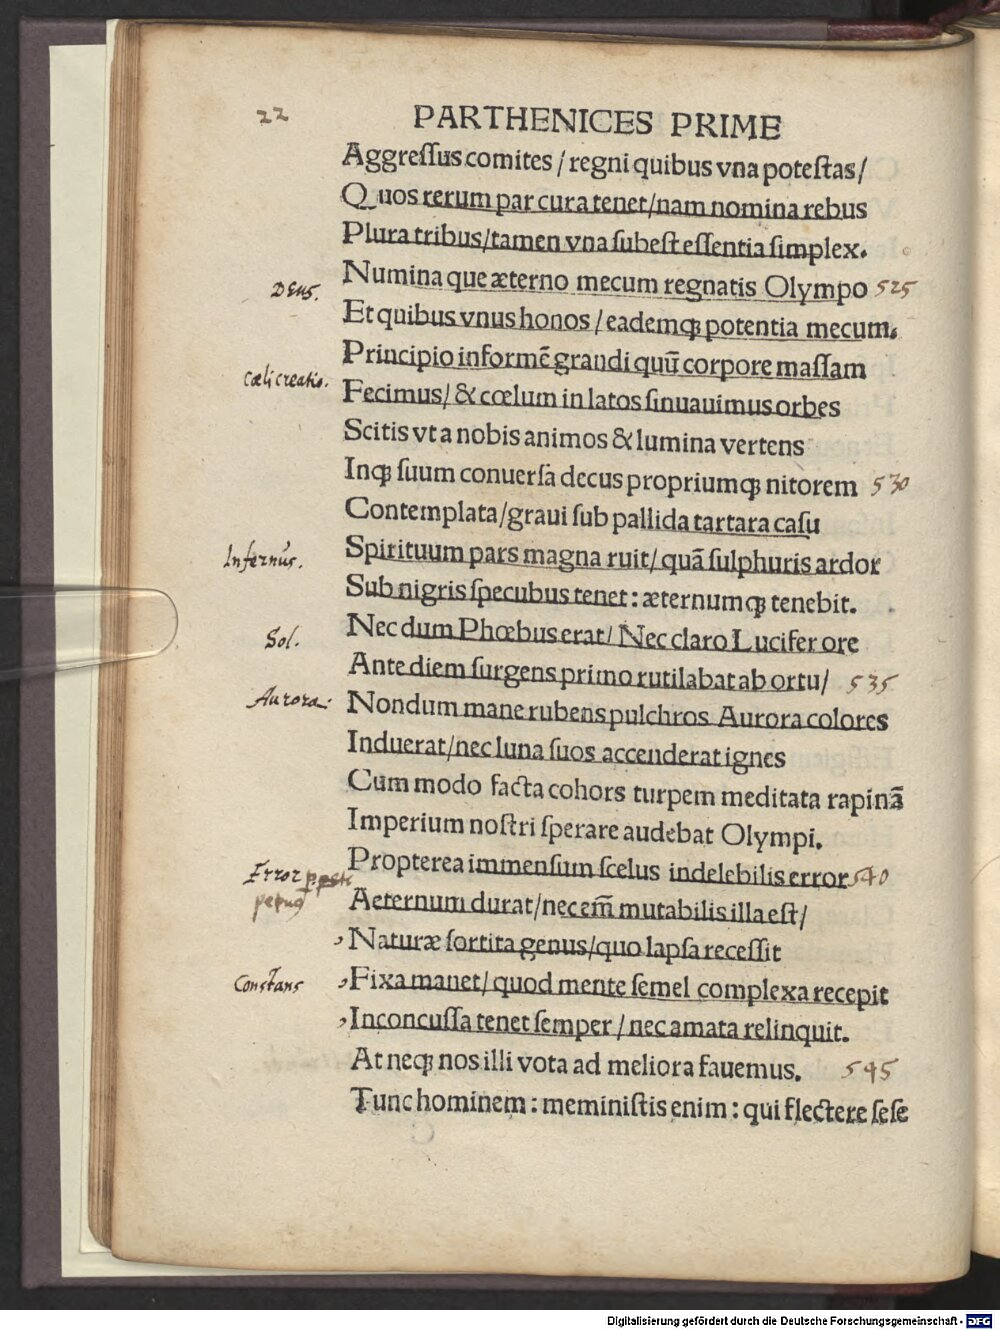 22
PARTHENICES PRIME
Aggreſſus comites / regni quibus vna poteſtas /
Quos rerum par cura tenet / nam nomina rebus
Plura tribus / tamen vna ſubeſt eſſentia ſimplex.
Deus. Numina que æterno mecum regnatis Olympo 525
Et quibus vnus honos / eademqꝫ potentia mecum.
Principio informē grandi quū corpore maſſam
Cœli creatio. Fecimus / & cœlum in latos ſinuauimus orbes
Scitis vt a nobis animos & lumina vertens
Inqꝫ ſuum conuerſa decus propriumqꝫ nitorem 530
Contemplata / graui ſub pallida tartara caſu
Infernus. Spirituum pars magna ruit / quā ſulphuris ardor
Sub nigris ſpecubus tenet : æternumqꝫ tenebit.
Sol. Nec dum Phœbus erat / Nec claro Lucifer ore
Ante diem ſurgens primo rutilabat ab ortu / 535
Aurora. Nondum mane rubens pulchros Aurora colores
Induerat / nec luna ſuos accenderat ignes
Cum modo facta cohors turpem meditata rapinā
Imperium noſtri ſperare audebat Olympi.
Error Propterea immenſum ſcelus indelebilis error 540
Aeternum durat / nec em̄ mutabilis illa eſt /
Naturæ ſortita genus / quo lapſa receſſit
Constans Fixa manet / quod mente ſemel complexa recepit
Inconcuſſa tenet ſemper / nec amata relinquit.
At neqꝫ nos illi vota ad meliora fauemus. 545
Tunc hominem : meminiſtis enim : qui flectere ſeſe
Digitalisierung gefördert durch die Deutsche Forschungsgemeinschaft - DFG